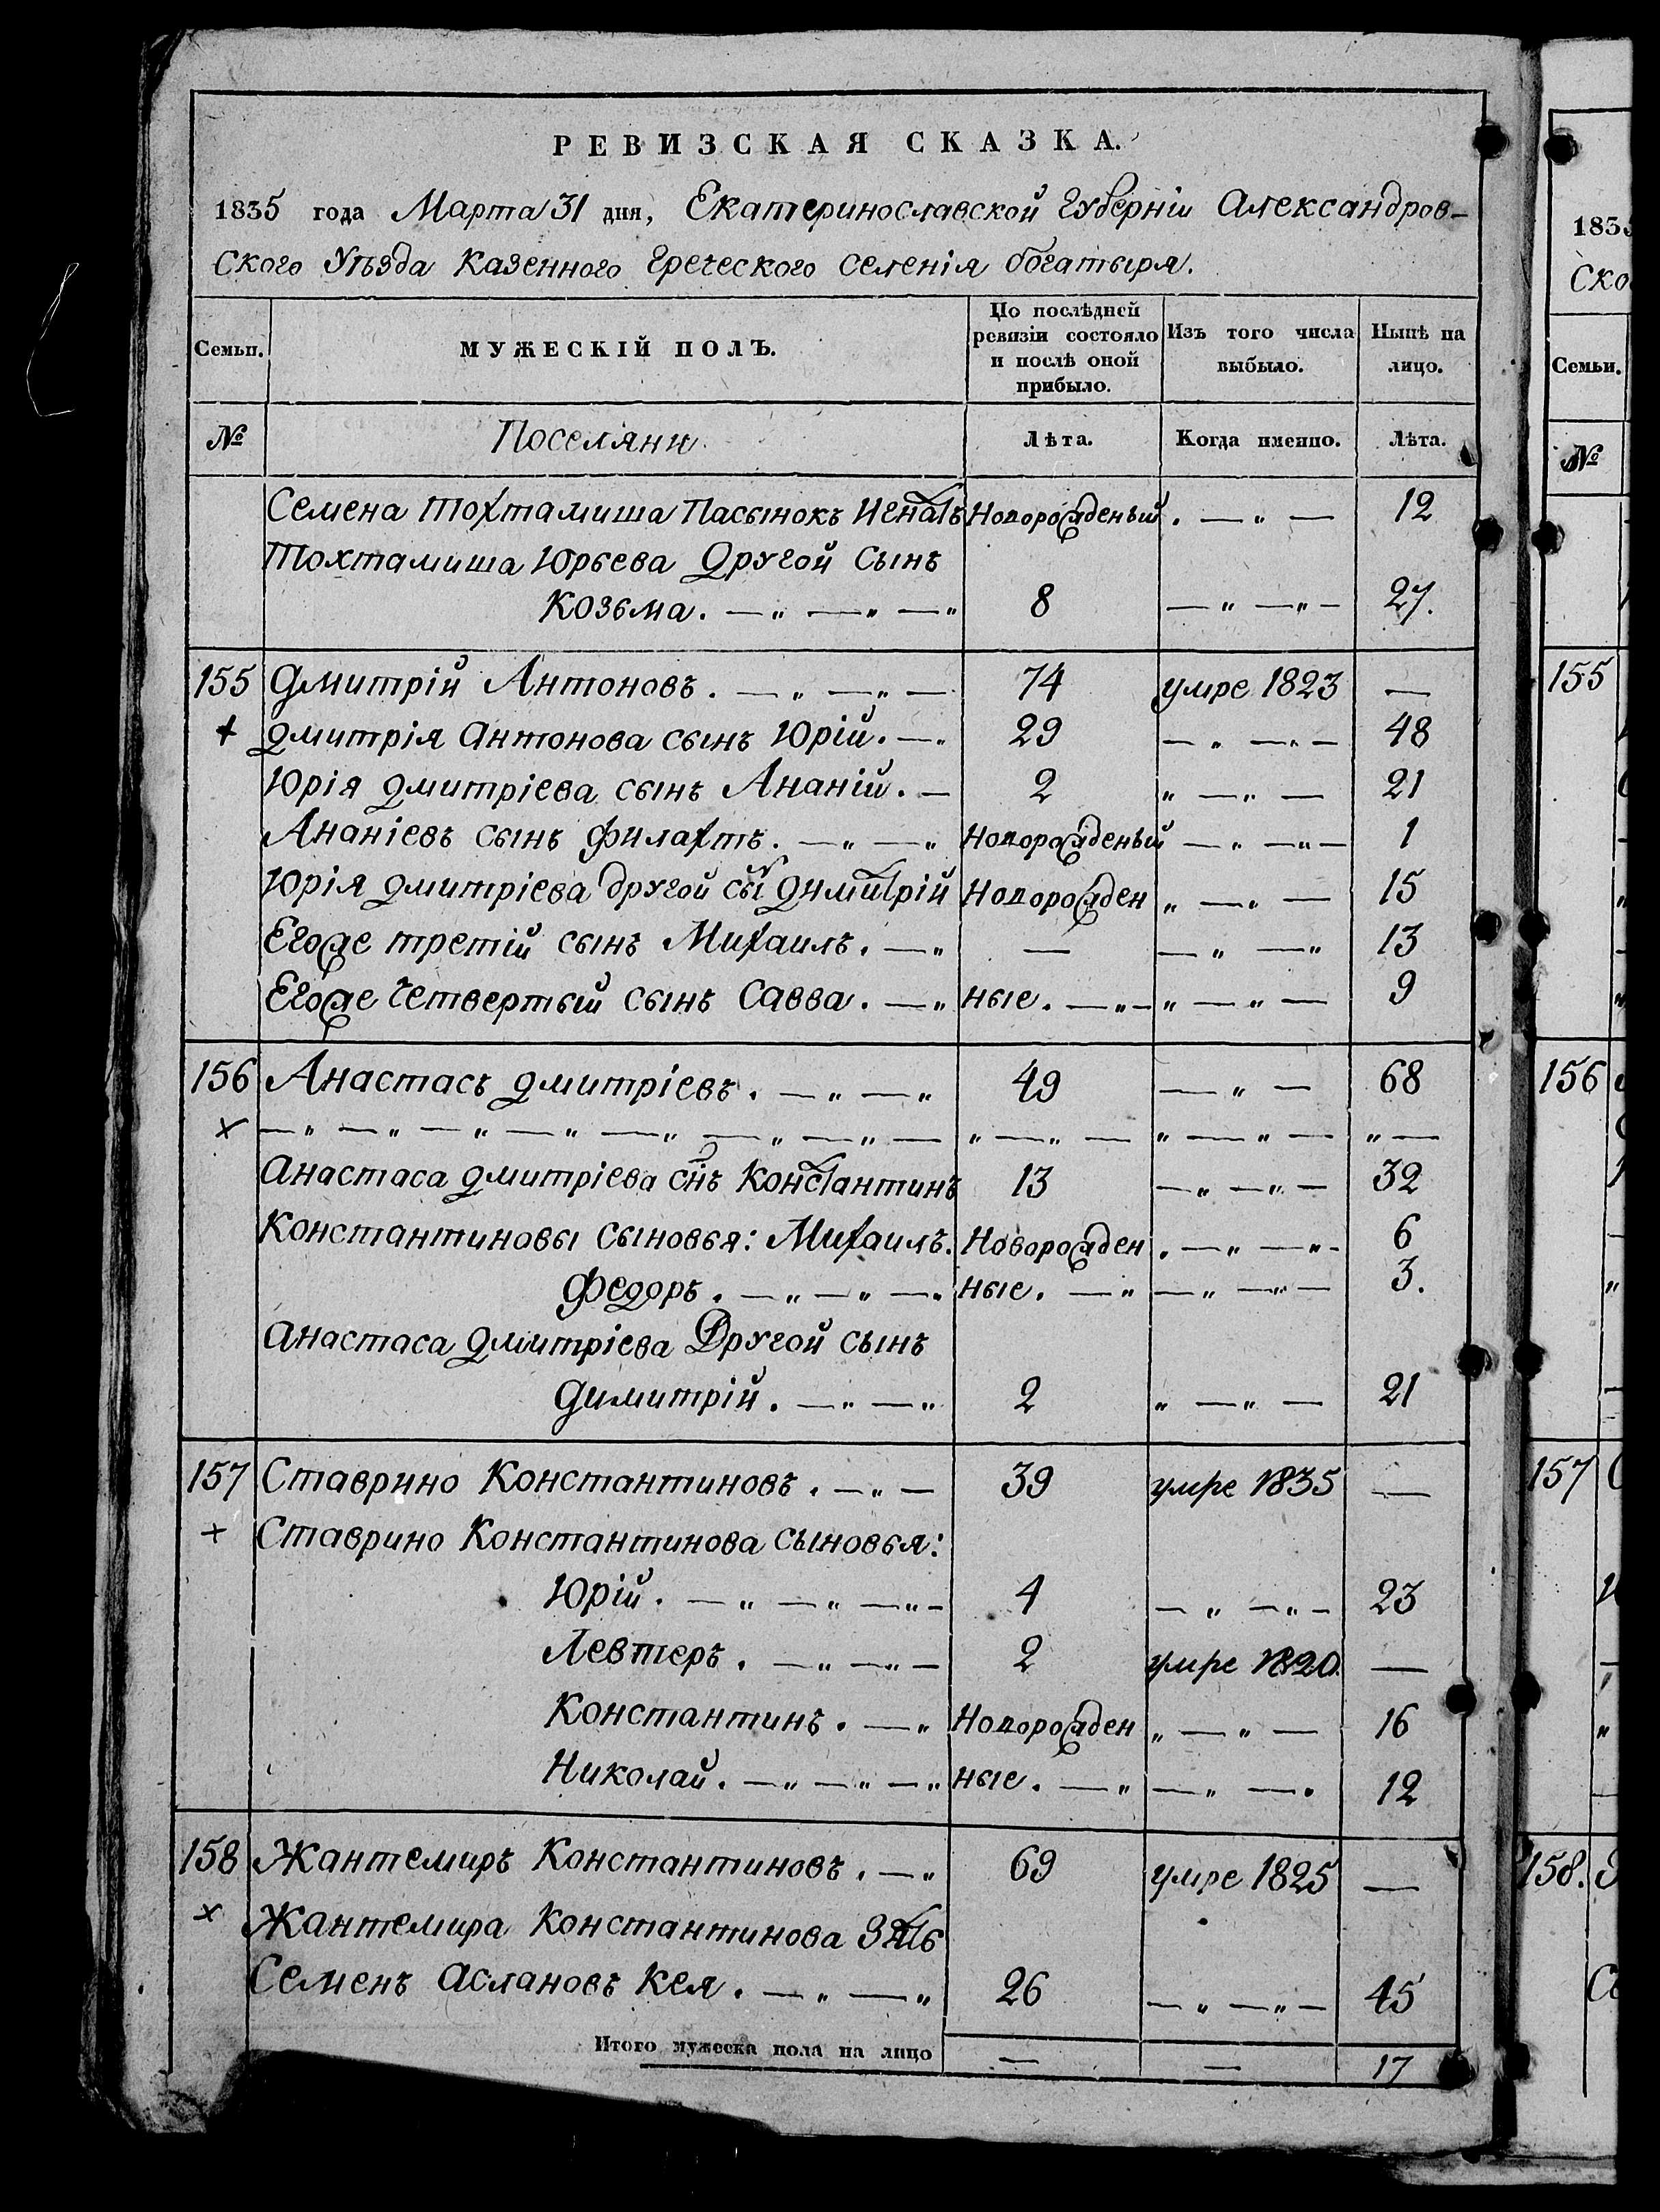 РЕВИЗСКАЯ СКАЗКА.
1835 года Марта 31 дня, Екатеринославской Губерніи Александров-
ского Уѣзда Казенного Греческого селенія богатыря.
Семьи. МУЖЕСКІЙ ПОЛЪ. По послѣдней ревизіи состояло и послѣ оной прибыло. Изъ того числа выбыло. Нынѣ на лицо.
№ Поселяни Лѣта. Когда именно. Лѣта.
Семена Тохтамиша Пасынокъ Игнатъ Новорожденый 12
Тохтамиша Юрьева Другой сынъ
Козьма. 8 27.
155 Дмитрій Антоновъ. 74 умре 1823 —
+ Дмитрія Антонова сынъ Юрій. 29 48
Юрія Дмитріева сынъ Ананій. 2 21
Ананіевъ сынъ Филахтъ. Новорожденый 1
Юрія Дмитріева другой сынъ Димитрій Новорожден 15
Егоже третій сынъ Михаилъ. — 13
Егоже Четвертый сынъ Савва. ные. 9
156 Анастасъ Дмитріевъ. 49 68
×
Анастаса Дмитріева снъ Константинъ 13 32
Константиновы Сыновья: Михаилъ. Новорожден 6
Федоръ. ные. 3.
Анастаса Дмитріева Другой сынъ
Димитрій. 2 21
157 Ставрино Константиновъ. 39 умре 1835 —
+ Ставрино Константинова сыновья:
Юрій. 4 23
Левтеръ. 2 умре 1820. —
Константинъ. Новорожден 16
Николай. ные. 12
158 Жантемиръ Константиновъ. 69 умре 1825 —
× Жантемира Константинова Зять
Семенъ Аслановъ Кея. 26 45
Итого мужеска пола на лицо — — 17
1835
Ско
Семьи.
№
155
156
157
158.